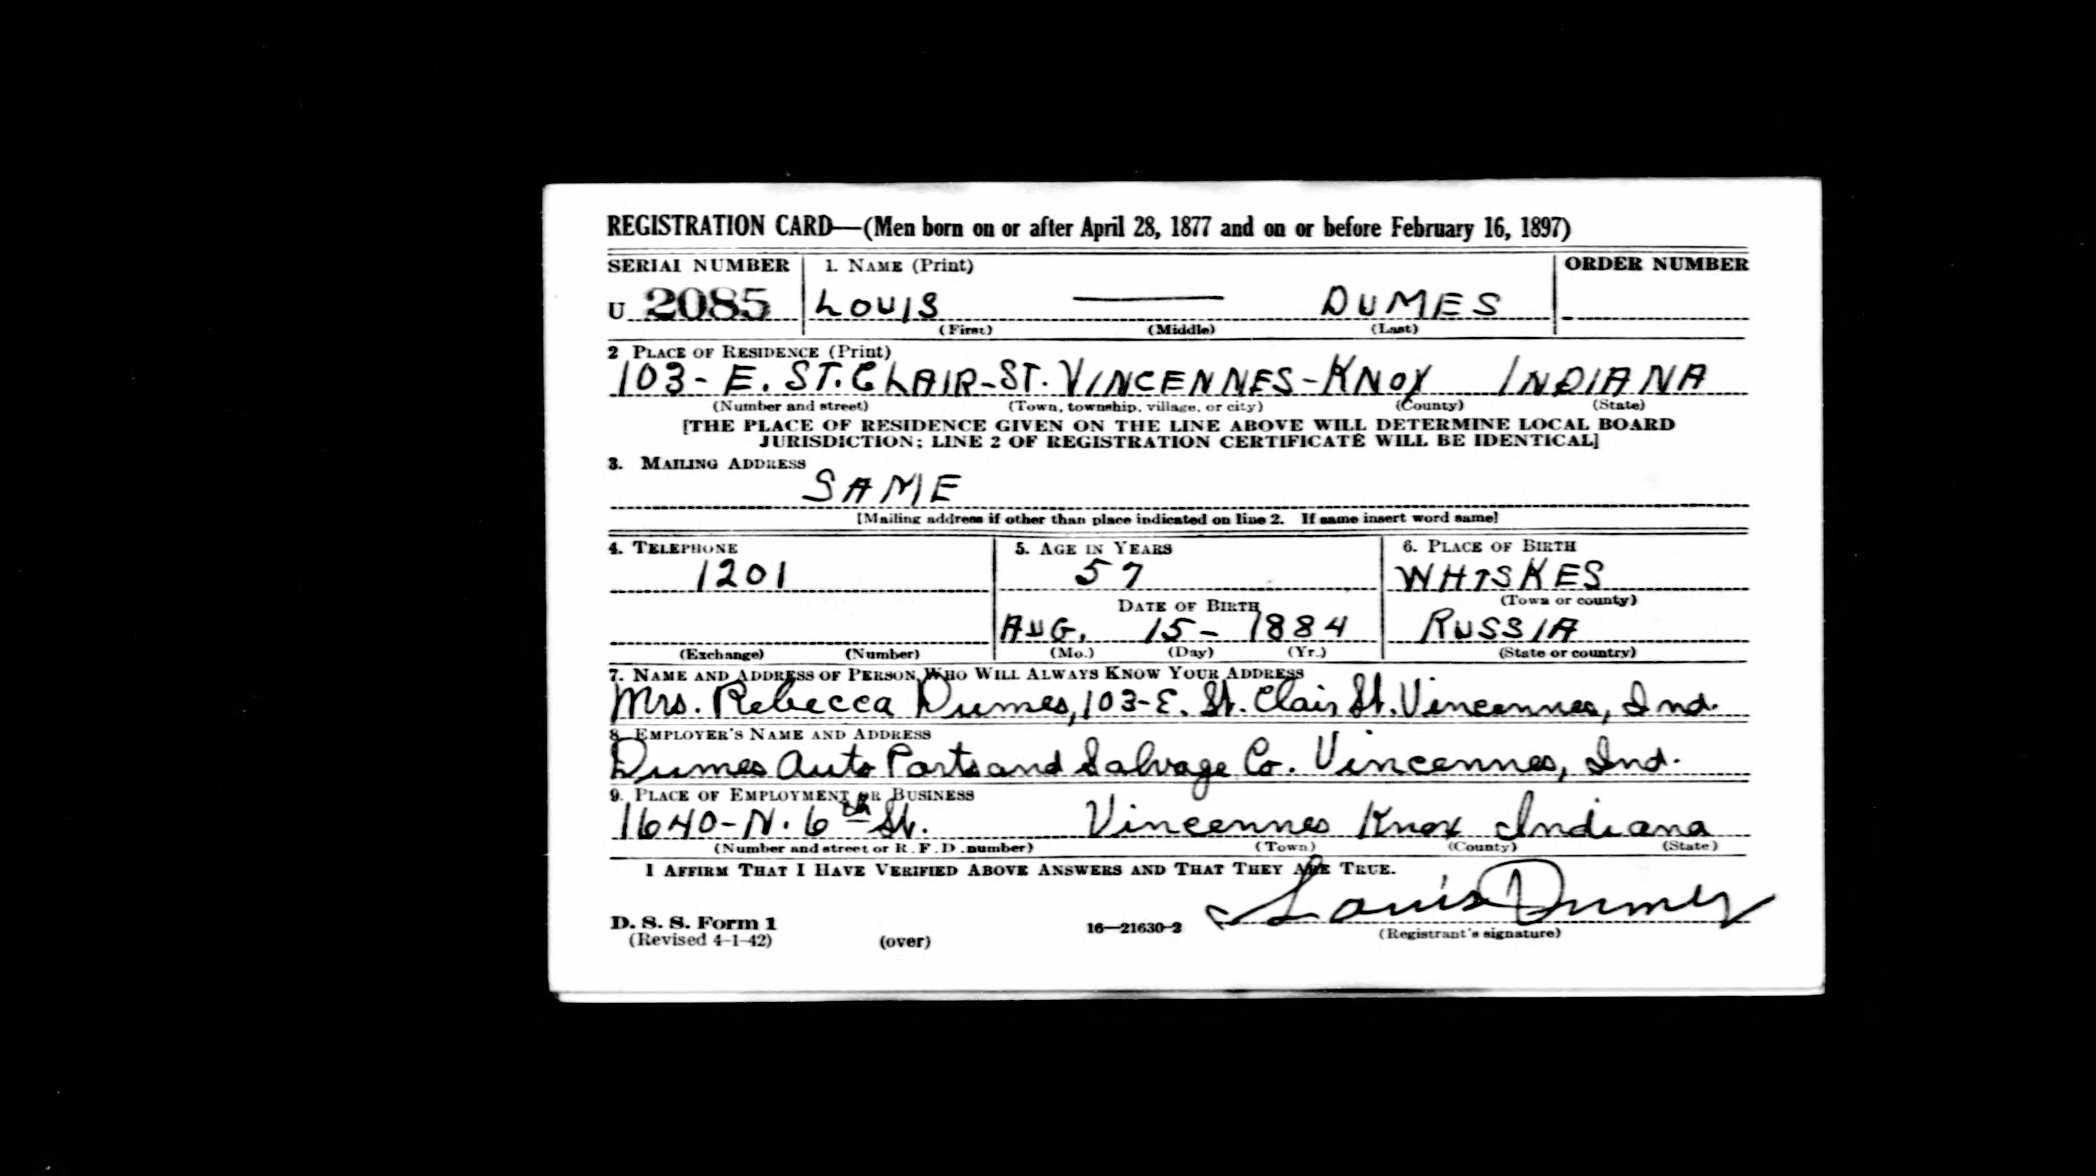 REGISTRATION CARD—(Men born on or after April 28, 1877 and on or before February 16, 1897)
SERIAL NUMBER 1. NAME (Print) ORDER NUMBER
U 2085 LOUIS —— DUMES
(First) (Middle) (Last)
2 PLACE OF RESIDENCE (Print)
103- E. ST. CLAIR-ST. VINCENNES-KNOX INDIANA
(Number and street) (Town, township, village, or city) (County) (State)
[THE PLACE OF RESIDENCE GIVEN ON THE LINE ABOVE WILL DETERMINE LOCAL BOARD
JURISDICTION; LINE 2 OF REGISTRATION CERTIFICATE WILL BE IDENTICAL]
3. MAILING ADDRESS
SAME
[Mailing address if other than place indicated on line 2. If same insert word same]
4. TELEPHONE 5. AGE IN YEARS 6. PLACE OF BIRTH
1201 57 WHISKES
DATE OF BIRTH (Town or county)
AUG. 15- 1884 RUSSIA
(Exchange) (Number) (Mo.) (Day) (Yr.) (State or country)
7. NAME AND ADDRESS OF PERSON WHO WILL ALWAYS KNOW YOUR ADDRESS
Mrs. Rebecca Dumes, 103-E. St. Clair St. Vincennes, Ind.
8. EMPLOYER'S NAME AND ADDRESS
Dumes Auto Parts and Salvage Co. Vincennes, Ind.
9. PLACE OF EMPLOYMENT OR BUSINESS
1640-N. 6th St. Vincennes Knox Indiana
(Number and street or R. F. D. number) (Town) (County) (State)
I AFFIRM THAT I HAVE VERIFIED ABOVE ANSWERS AND THAT THEY ARE TRUE.
Louis Dumes
D. S. S. Form 1
(Revised 4-1-42) (over) 16—21630-2 (Registrant's signature)